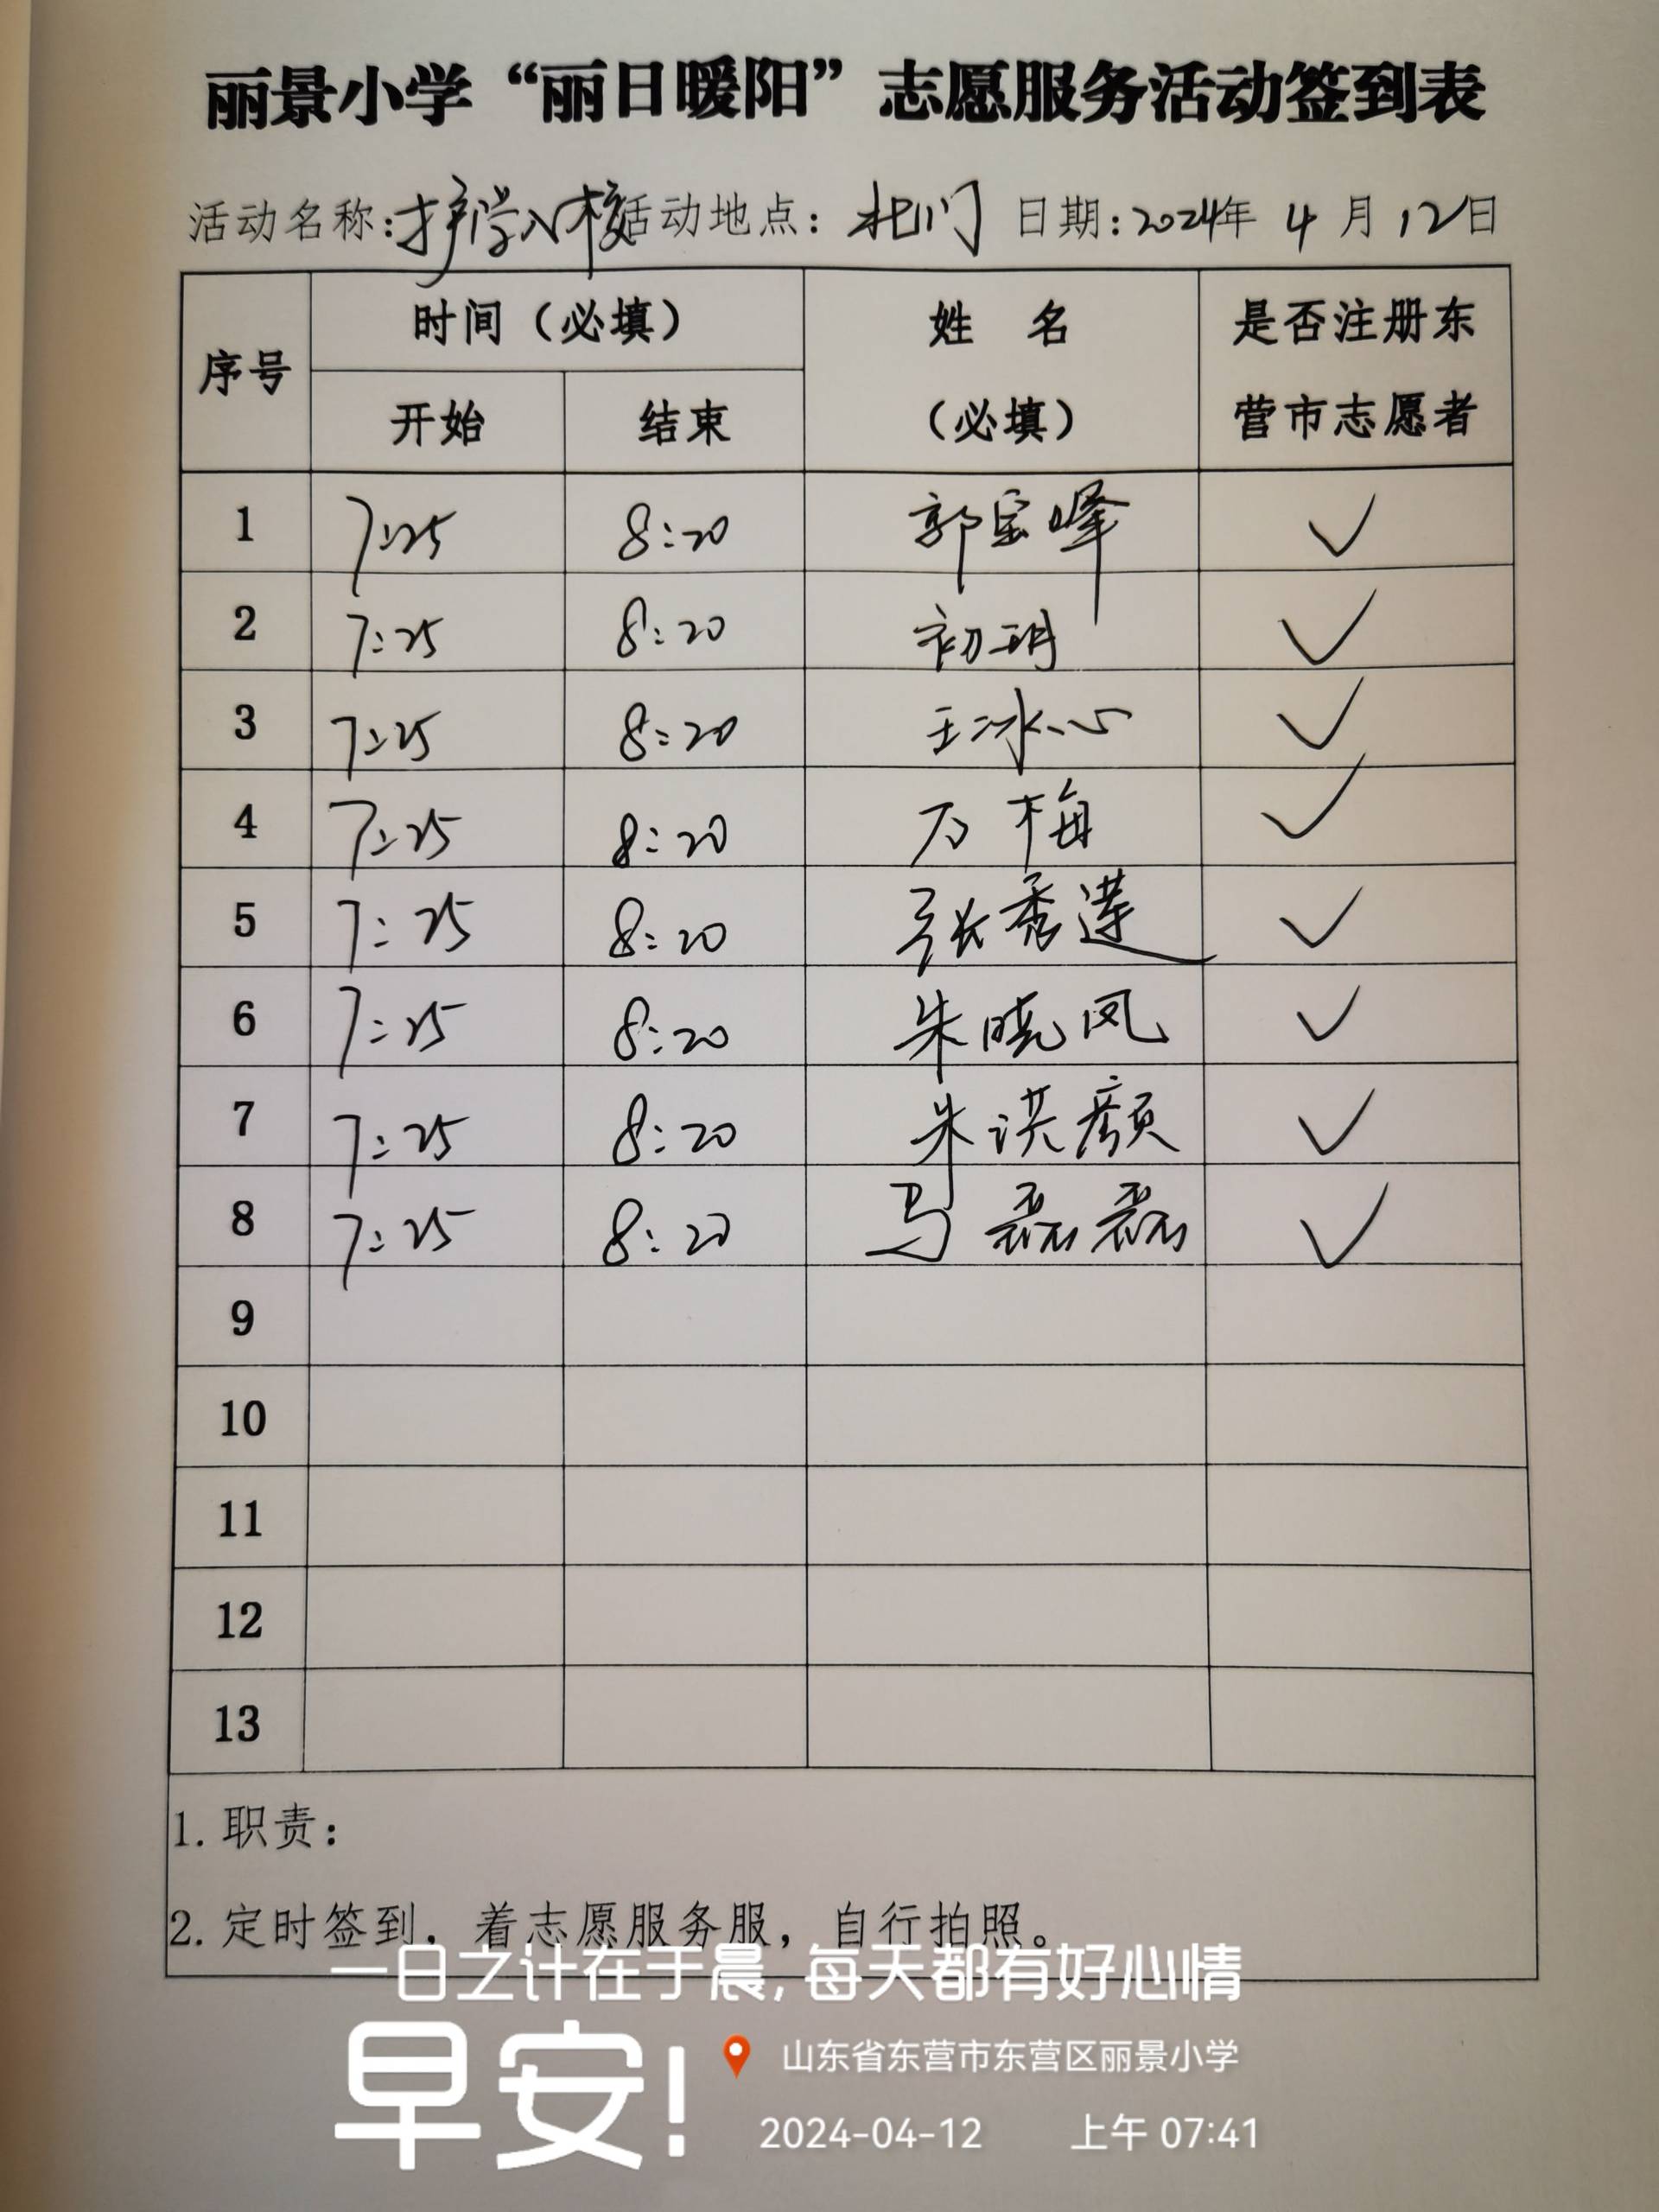 丽景小学“丽日暖阳”志愿服务活动签到表
活动名称:护学入校 活动地点: 北门 日期:2024年 4 月 12日
序号 时间（必填） 姓 名（必填） 是否注册东营市志愿者
开始 结束
1 7:25 8:20 郭宝峰 ✓
2 7:25 8:20 初玥 ✓
3 7:25 8:20 王冰心 ✓
4 7:25 8:20 万梅 ✓
5 7:25 8:20 张秀莲 ✓
6 7:25 8:20 朱晓凤 ✓
7 7:25 8:20 朱洪颜 ✓
8 7:25 8:20 马磊磊 ✓
9
10
11
12
13
1.职责：
2.定时签到，着志愿服务服，自行拍照。
一日之计在于晨,每天都有好心情
早安!
山东省东营市东营区丽景小学
2024-04-12 上午 07:41